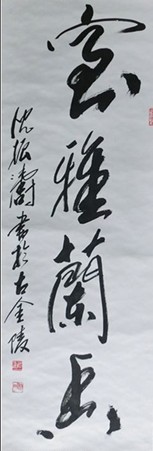 室雅蘭香
沈振濤書於古金陵